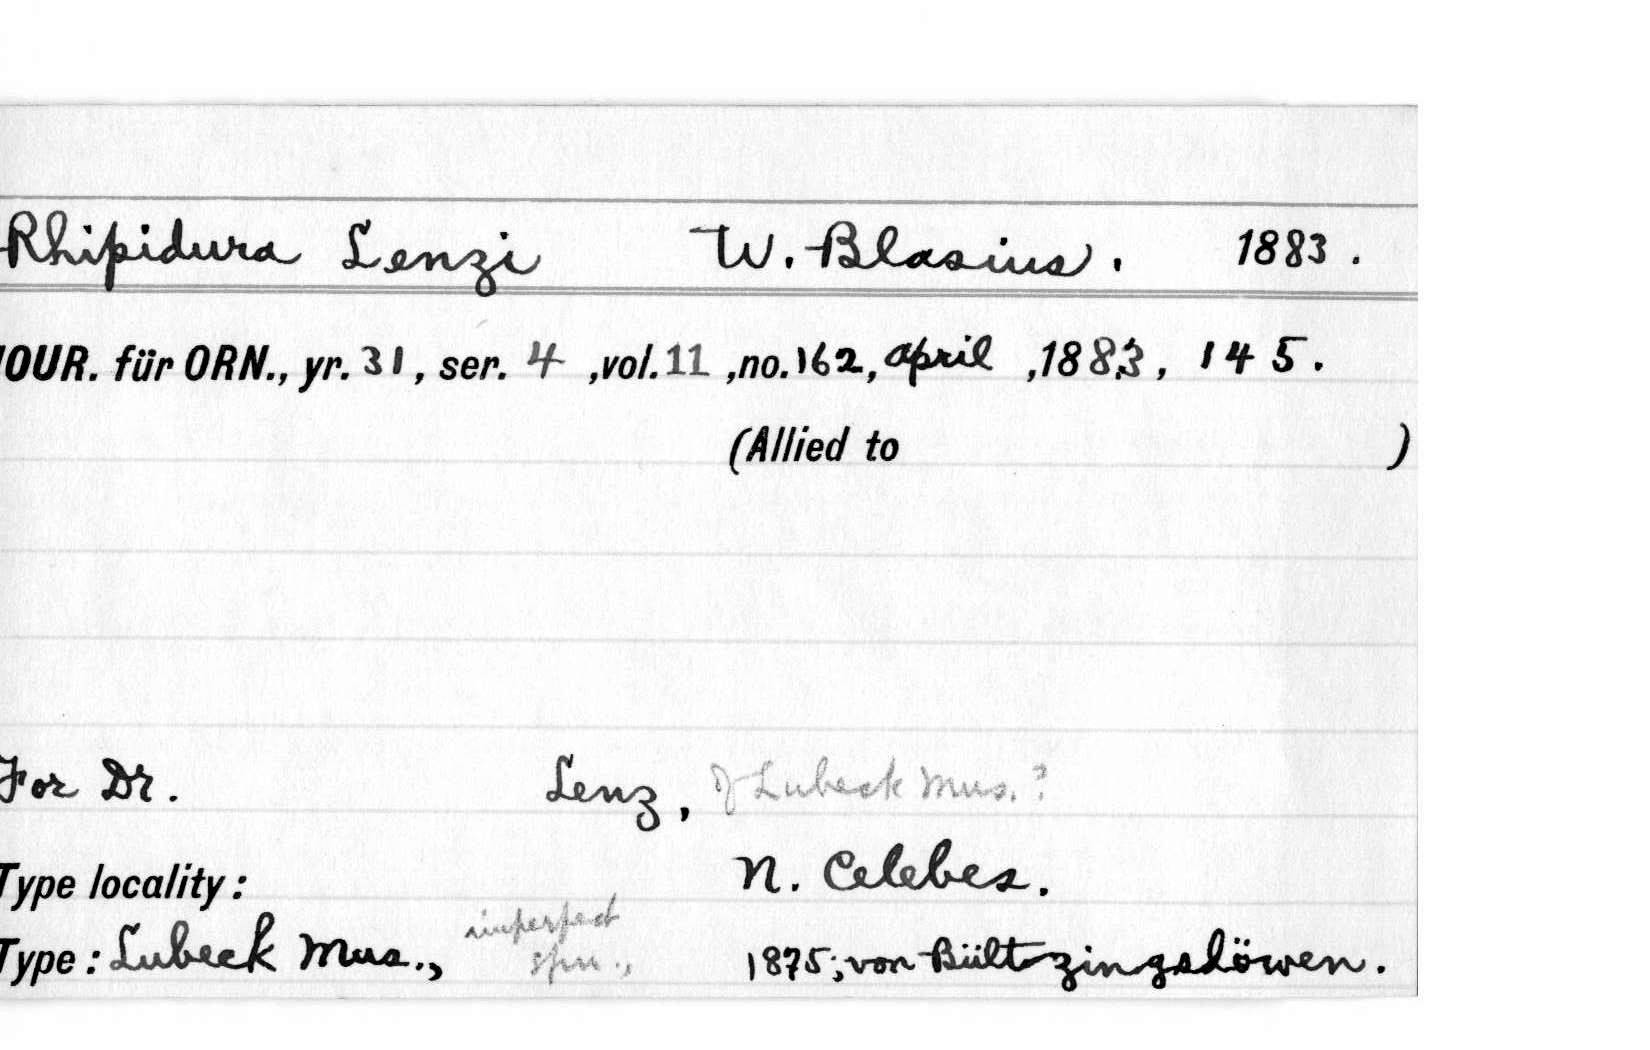 Rhipidura Lenzi W. Blasius. 1883.
JOUR. für ORN., yr. 31, ser. 4, vol. 11, no. 162, april, 1883, 145.
(Allied to )
For Dr. Lenz, of Lubeck Mus.?
Type locality: N. Celebes.
Type: Lubeck Mus., imperfect spm., 1875; von Bültzingslöwen.